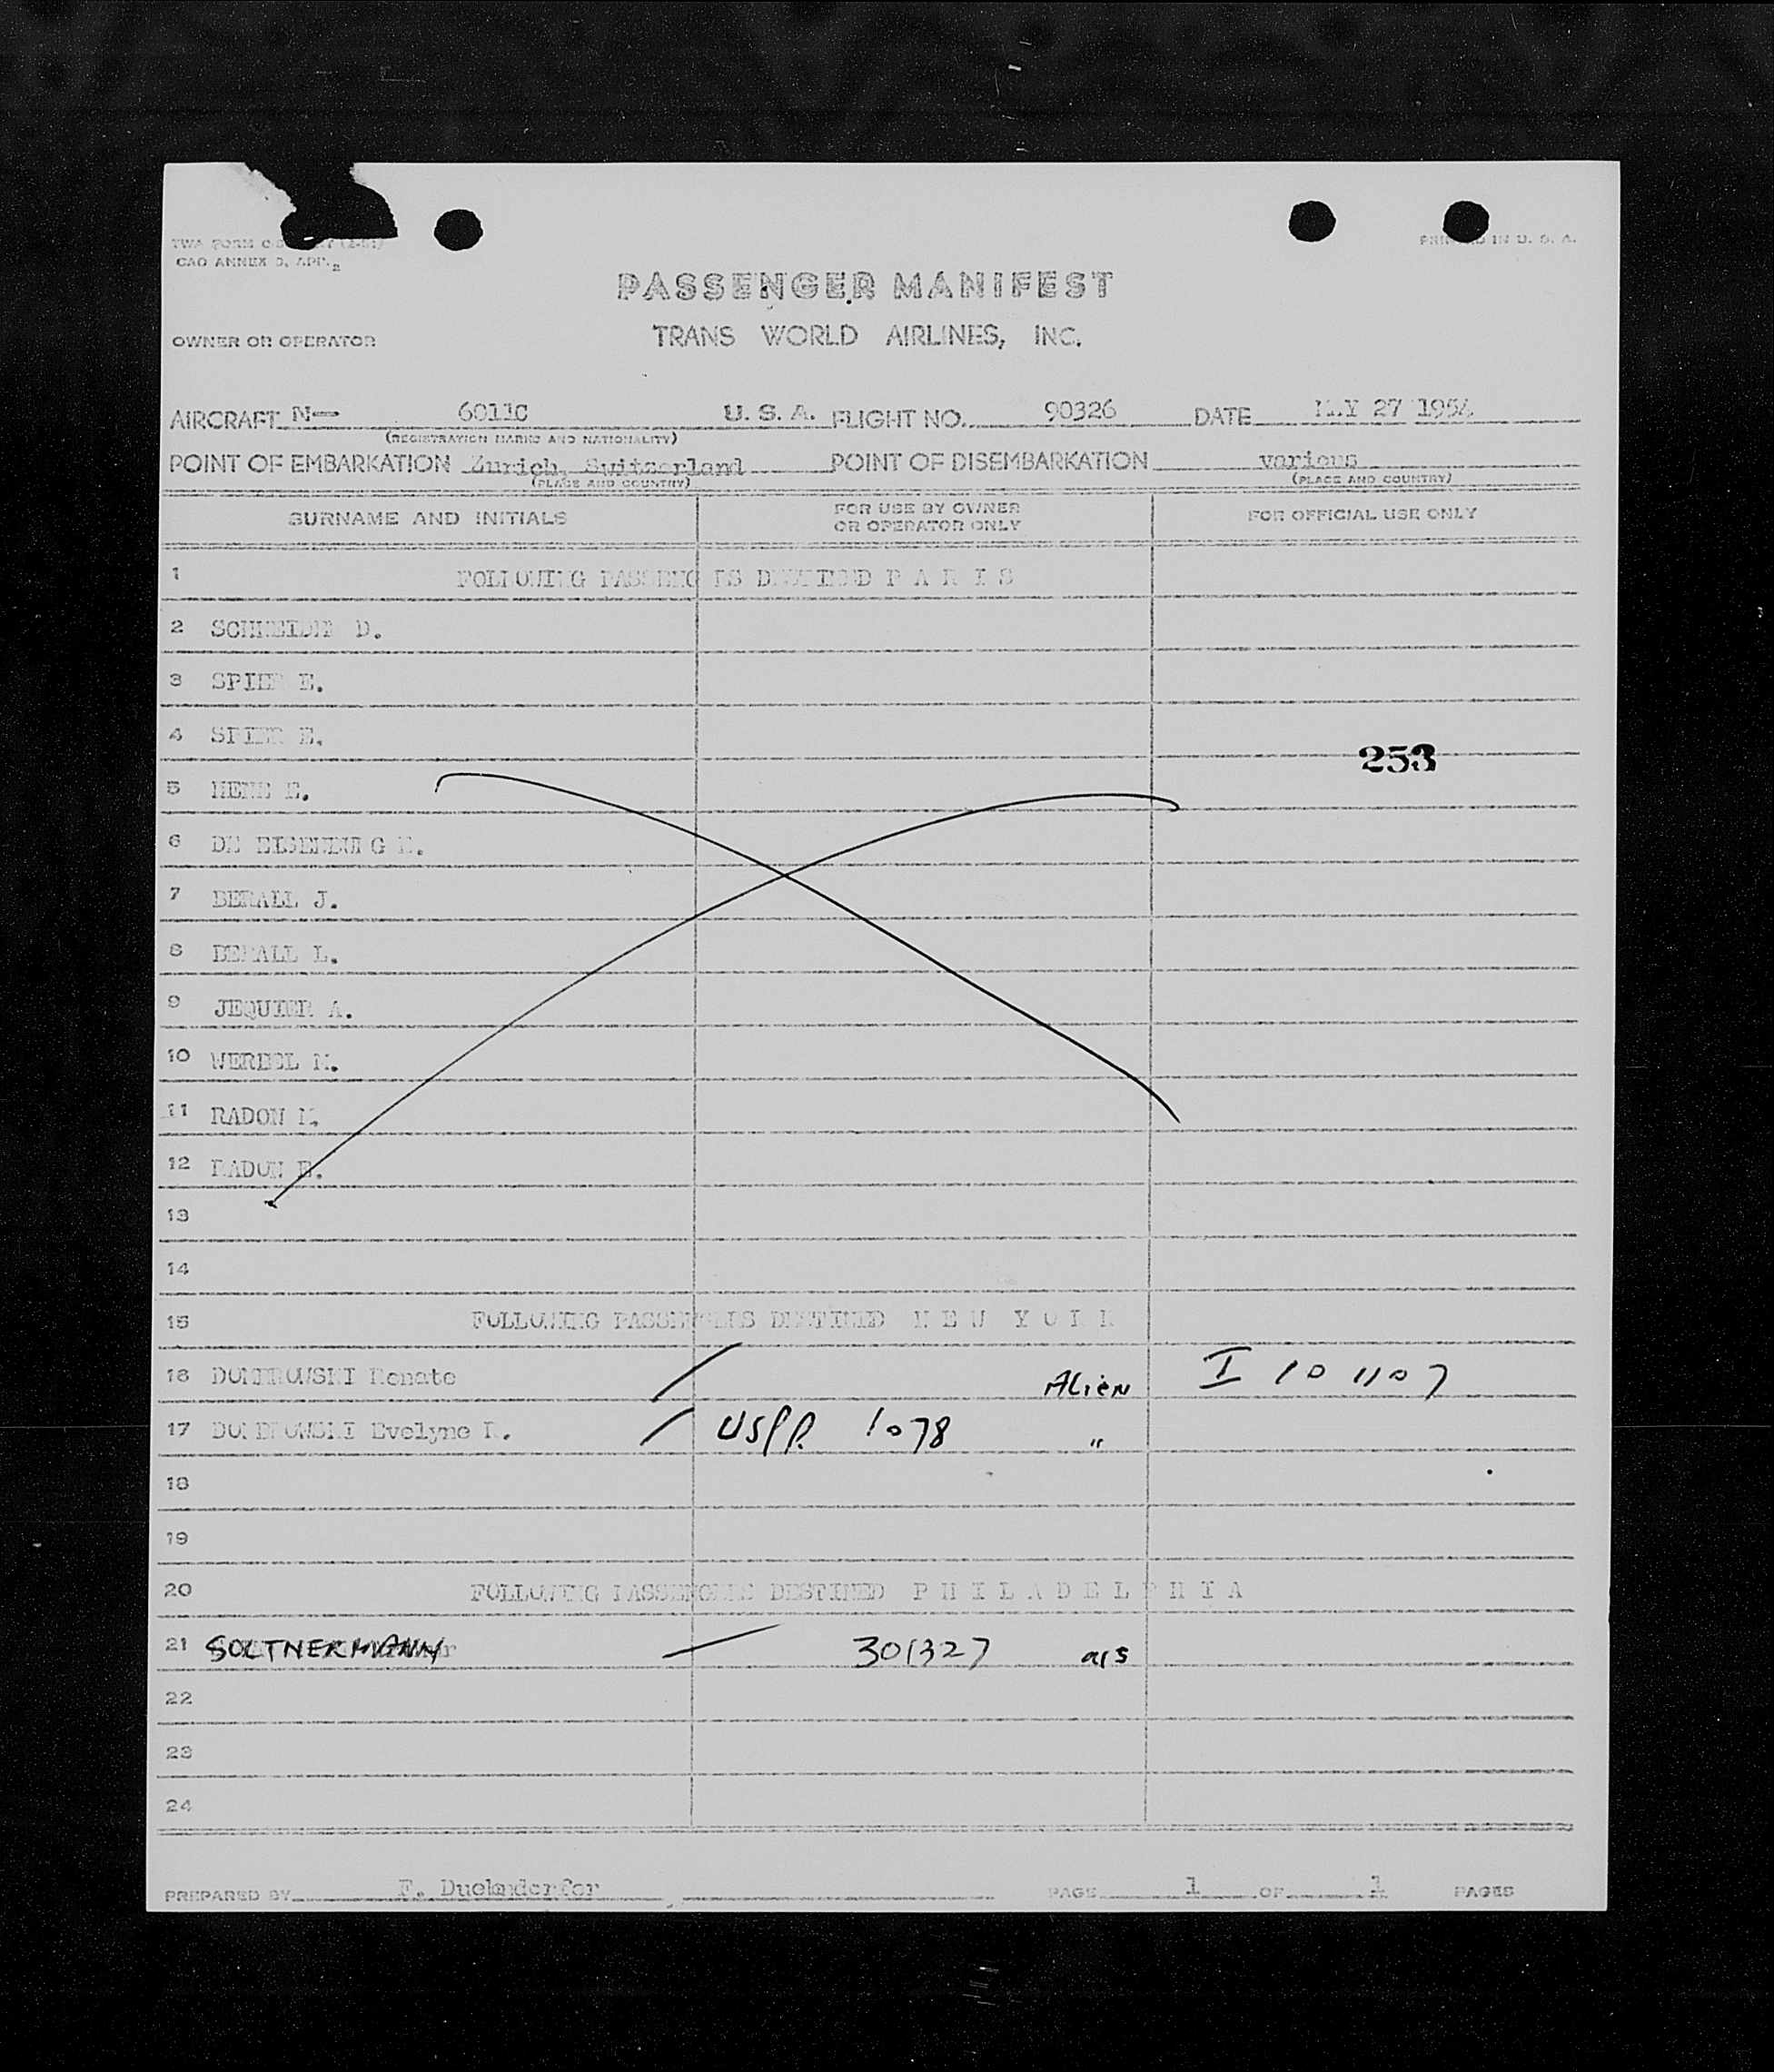 TWA FORM
CAO ANNEX 9, APP. 2
PRINTED IN U. S. A.
PASSENGER MANIFEST
OWNER OR OPERATOR TRANS WORLD AIRLINES, INC.
AIRCRAFT N— 6011C U. S. A. FLIGHT NO. 90326 DATE MAY 27 1954
(REGISTRATION MARKS AND NATIONALITY)
POINT OF EMBARKATION Zurich, Switzerland POINT OF DISEMBARKATION various
(PLACE AND COUNTRY) (PLACE AND COUNTRY)
SURNAME AND INITIALS FOR USE BY OWNER OR OPERATOR ONLY FOR OFFICIAL USE ONLY
1 FOLLOWING PASSENGERS DESTINED P A R I S
2 SCHNEIDER D.
3 SPIER E.
4 SPIER E.
253
5 E.
6 DE
7 BERALL J.
8 BERALL L.
9 JEQUIER A.
10 WERBEL M.
11 RADON
12 RADON E.
13
14
15 FOLLOWING PASSENGERS DESTINED N E W Y O R K
16 DOMBROWSKI Renate / Alien I 101107
17 DOMBROWSKI Evelyne R. / USPP. 1078 "
18
19
20 FOLLOWING PASSENGERS DESTINED P H I L A D E L P H I A
21 SOLTNERMANN 301327
22
23
24
PREPARED BY F. PAGE 1 OF 1 PAGES